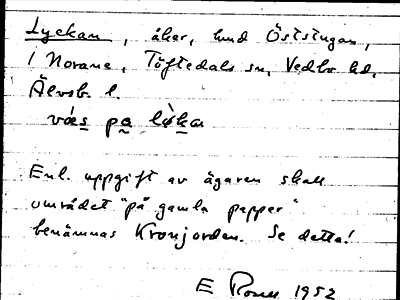 Lyckan, åker, hund Öststugan,
1 Norane, Töftedals sn, Vedbo hd,
Älvsb. l.
vás pa lø̀ka
Enl. uppgift av ägaren skall
området "på gamla papper"
benämnas Kronjorden. Se detta!
E 1952